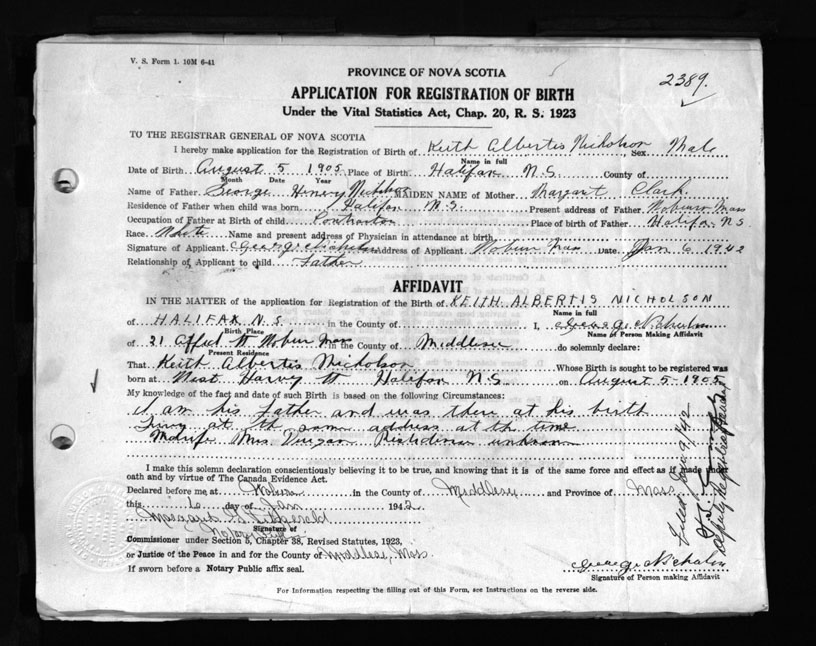 V. S. Form 1. 10M 6-41
2389.
PROVINCE OF NOVA SCOTIA
APPLICATION FOR REGISTRATION OF BIRTH
Under the Vital Statistics Act, Chap. 20, R. S. 1923
TO THE REGISTRAR GENERAL OF NOVA SCOTIA
I hereby make application for the Registration of Birth of Keith Albertis Nicholson Sex Male
Name in full
Date of Birth August 5 1905 Place of Birth Halifax N.S. County of
Month Date Year
Name of Father George Henry Nicholson MAIDEN NAME of Mother Margaret Clark
Residence of Father when child was born Halifax N.S. Present address of Father Woburn Mass
Occupation of Father at Birth of child Contractor Place of Birth of Father Halifax N S
Race White Name and present address of Physician in attendance at birth
Signature of Applicant George Nicholson Address of Applicant Woburn Mass Date Jan 6 1942
Relationship of Applicant to child Father
AFFIDAVIT
IN THE MATTER of the application for Registration of the Birth of KEITH ALBERTIS NICHOLSON
Name in full
of HALIFAX N.S. in the County of I, George Nicholson
Birth Place Name of Person Making Affidavit
of 21 St Woburn Mass in the County of Middlesex do solemnly declare:
Present Residence
That Keith Albertis Nicholson Whose Birth is sought to be registered was
born at West Harvey St Halifax N.S. on August 5 1905
My knowledge of the fact and date of such Birth is based on the following Circumstances:
I am his father and was there at his birth
living at the same address at the time
Midwife Mrs. unknown
I make this solemn declaration conscientiously believing it to be true, and knowing that it is of the same force and effect as if made under
oath and by virtue of The Canada Evidence Act.
Declared before me at Woburn in the County of Middlesex and Province of Mass.
this 6 day of Jan 1942
Margaret G. Fitzgerald
Notary Public
Signature of
Commissioner under Section 5, Chapter 38, Revised Statutes, 1923,
or Justice of the Peace in and for the County of Middlesex, Mass.
If sworn before a Notary Public affix seal.
George Nicholson
Signature of Person making Affidavit
For Information respecting the filling out of this Form, see Instructions on the reverse side.
Filed Jan 9/42
Deputy Registrar General